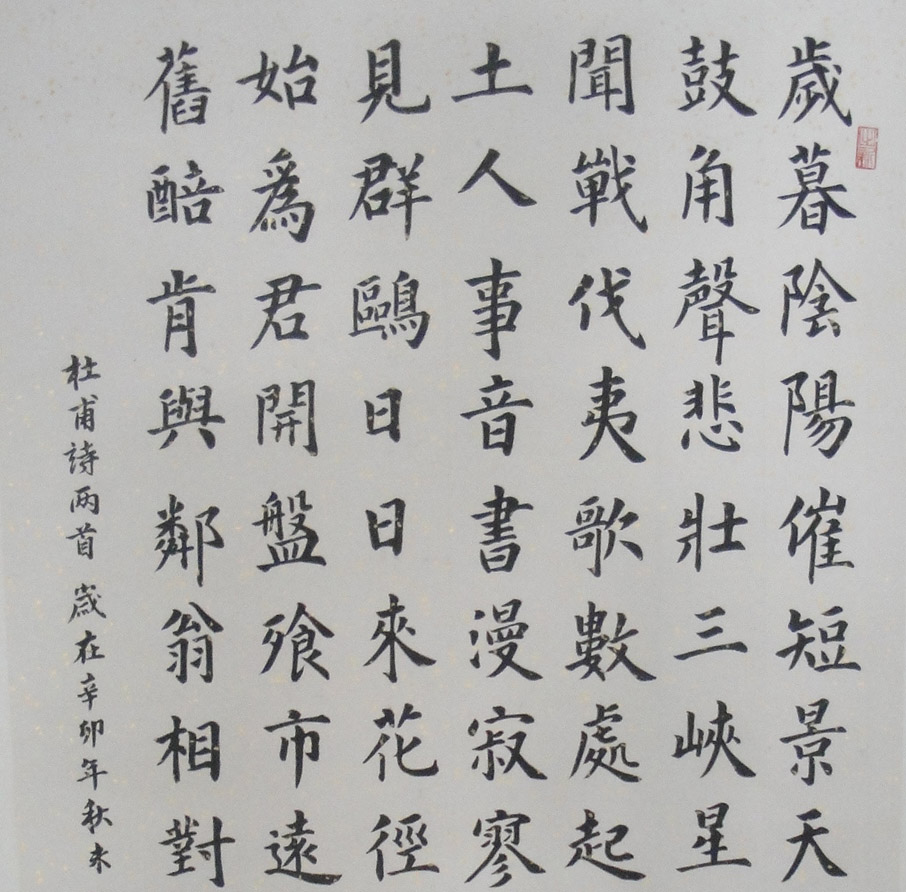 歲暮陰陽催短景天
鼓角聲悲壯三峽星
聞戰伐夷歌數處起
土人事音書漫寂寥
見群鷗日日來花徑
始為君開盤飧市遠
舊醅肯與鄰翁相對
杜甫詩兩首 歲在辛卯年秋末